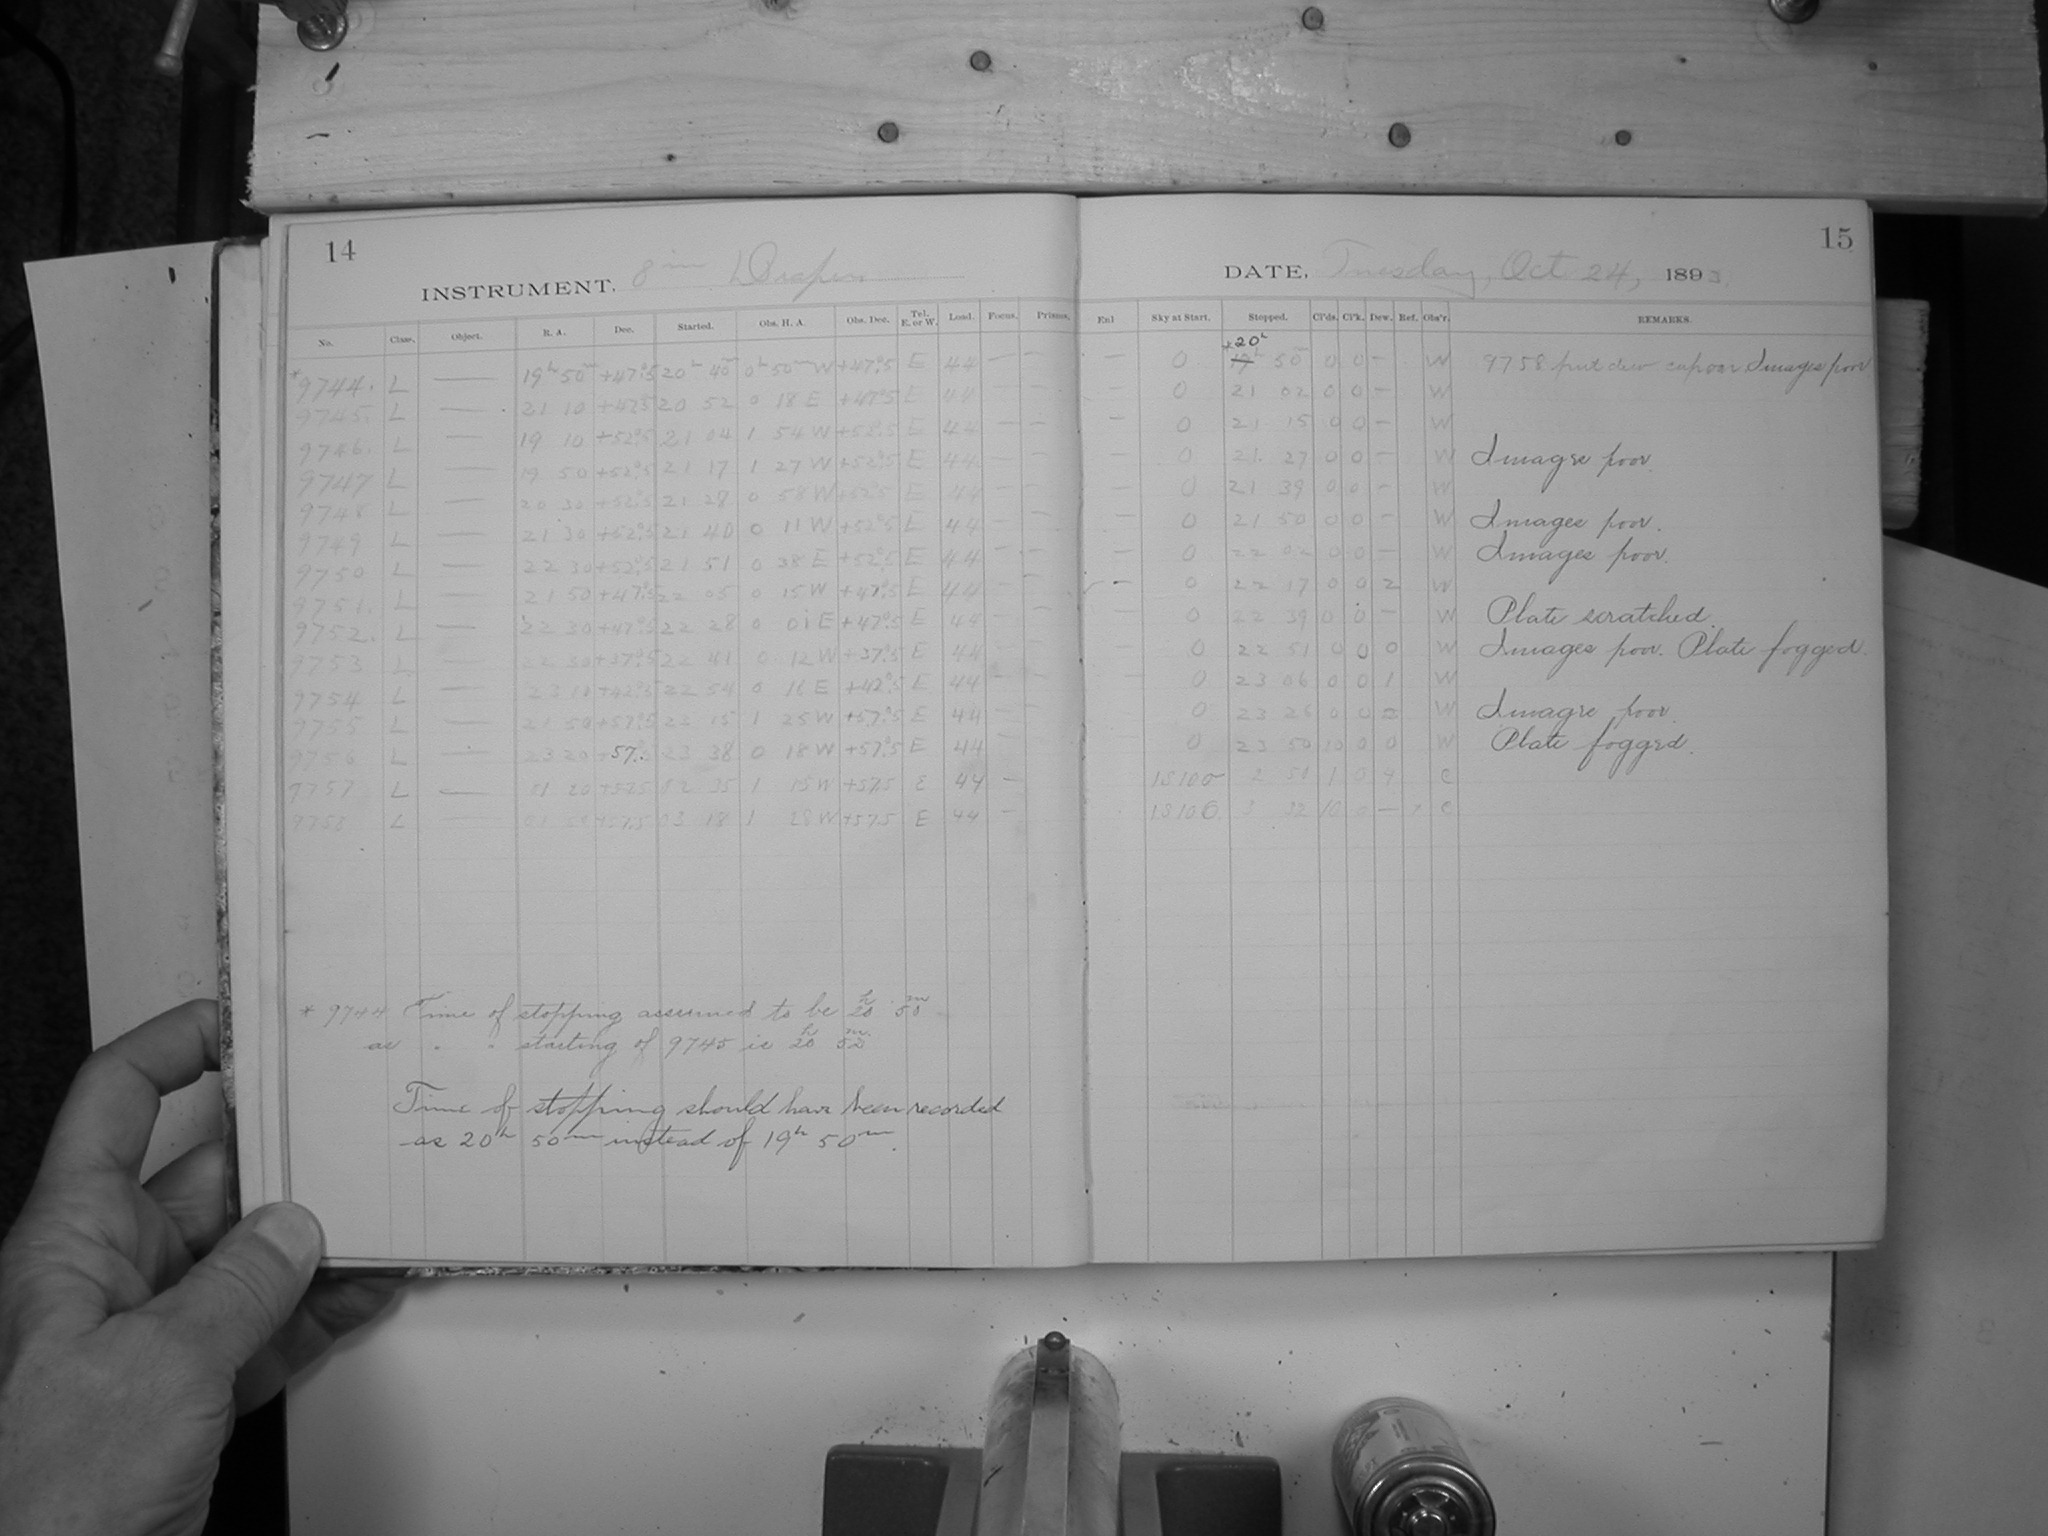 14
INSTRUMENT, 8 in Draper
No. Class. Object. R. A. Dec. Started. Obs. H. A. Obs. Dec. Tel. E. or W. Load. Focus. Prisms.
*9744. L — 19h 50m +47°.5 20h 40m 0h 50m W +47°.5 E 44 — —
9745. L — 21 10 +47.5 20 52 0 18 E +47°.5 E 44 — —
9746. L — 19 10 +52°.5 21 04 1 54 W +52°.5 E 44 — —
9747 L — 19 50 +52°.5 21 17 1 27 W +52°.5 E 44 — —
9748 L — 20 30 +52°.5 21 28 0 58 W +52°.5 E 44 — —
9749 L — 21 30 +52°.5 21 40 0 11 W +52°.5 E 44 — —
9750 L — 22 30 +52°.5 21 51 0 38 E +52°.5 E 44 — —
9751. L — 21 50 +47°.5 22 05 0 15 W +47°.5 E 44 — —
9752. L — 22 30 +47°.5 22 28 0 01 E +47°.5 E 44 — —
9753 L — 22 30 +37°.5 22 41 0 12 W +37°.5 E 44 — —
9754 L — 23 10 +42°.5 22 54 0 16 E +42°.5 E 44 — —
9755 L — 50 +57°.5 15 1 25 W +57°.5 E 44 — —
9756 L — 23 20 +57.5 23 38 0 18 W +57°.5 E 44
9757 L — 01 20 +57.5 02 35 1 15 W +57.5 E 44 —
9758 L — 01 50 +57.5 03 18 1 28 W +57.5 E 44 —
* 9744 Time of stopping assumed to be 20h 50m
as " " starting of 9745 is 20h 52m
Time of stopping should have been recorded
as 20h 50m instead of 19h 50m.
15
DATE, Tuesday, Oct 24, 1893.
Enl Sky at Start. Stopped. Cl'ds. Cl'k. Dew. Ref. Obs'r. REMARKS.
*20h
— 0 19h 50 0 0 – W 9758 put dew cap on Images poor
— 0 21 02 0 0 – W
— 0 21 15 0 0 – W
— 0 21 27 0 0 – W Images poor.
— 0 21 39 0 0 – W
— 0 21 50 0 0 – W Images poor.
— 0 22 02 0 0 – W Images poor.
— 0 22 17 0 0 2 W
— 0 22 39 0 0 – W Plate scratched.
— 0 22 51 0 0 0 W Images poor. Plate fogged.
— 0 23 06 0 0 1 W
0 23 0 0 W Images poor.
0 23 50 10 0 0 W Plate fogged.
1S100 2 50 1 0 C
1S100 3 32 10 0 — C